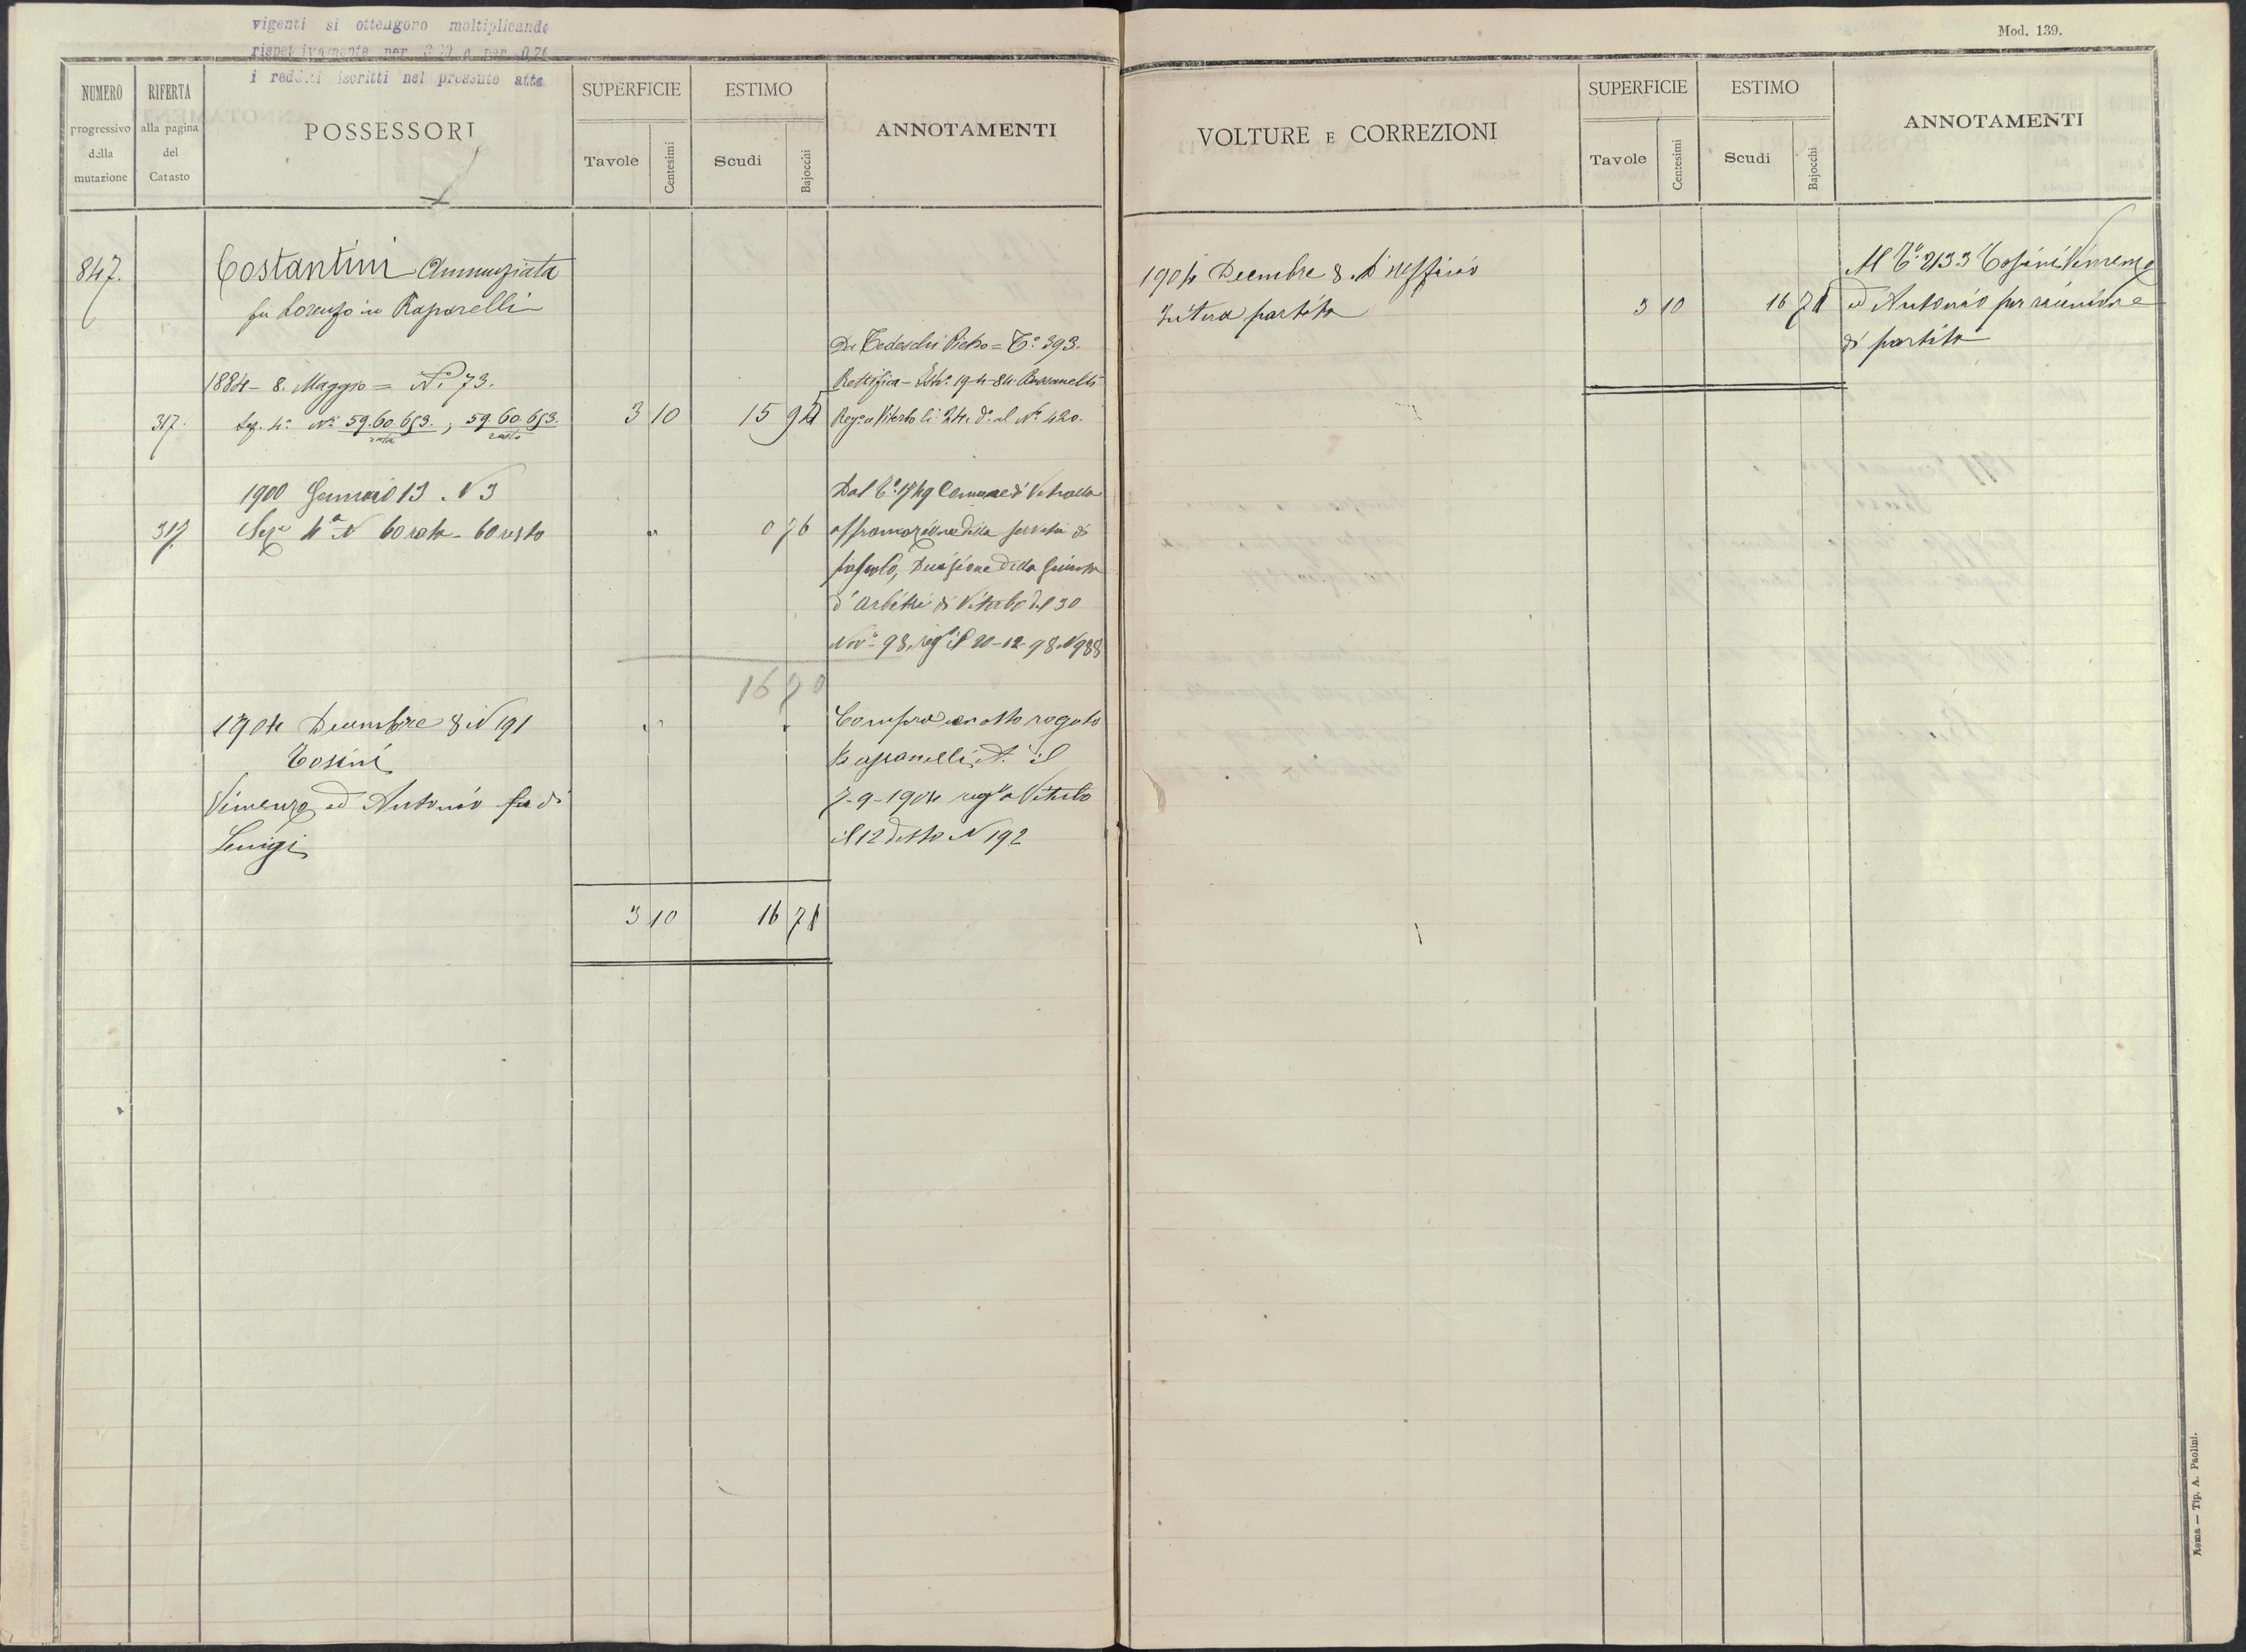 vigenti si ottengono moltiplicando
rispettivamente per e per 0,74
i redditi iscritti nel presente atto
Mod. 139.
NUMERO progressivo della mutazione
RIFERTA alla pagina del Catasto
POSSESSORI
SUPERFICIE
Tavole
Centesimi
ESTIMO
Scudi
Bajocchi
ANNOTAMENTI
847.
Costantini Annunziata
fu Lorenzo in Raparelli
Da Tedeschi Pietro = T.º 393.
1884 - 8. Maggio = N.º 73.
Rettifica - Istr.º 19-4-84
317. Sez. 4.ª N.i 59.60.653. ; 59.60.653. 3 10 15 95 Reg.º a Viterbo li 24. d.º al N.º 420.
rata resto
1900 Gennaio 13 N 3 Dal T.º 1749 Comune di Vetralla
317 Sez.e 4ª N 60 rata - 60 resto " 0 76 affrancazione della servitù di
pascolo, Decisione della Giunta
d'Arbitri di Viterbo del 30
Nov.e 98, reg.º il 20-12-98 N 988
16 70
1904 Decembre 8 N 191 " " Compra con atto rogato
Tosini il
Vincenzo ed Antonio fu di 7-9-1904 reg.to a Viterbo
Luigi il 12 detto N 192
3 10 16 71
VOLTURE E CORREZIONI
SUPERFICIE
Tavole
Centesimi
ESTIMO
Scudi
Bajocchi
ANNOTAMENTI
1904 Decembre 8 D'uffizio Al T.º 2133 Tosini Vincenzo
Intera partita 3 10 16 71 ed Antonio per riunione
di partita
Roma — Tip. A. Paolini.